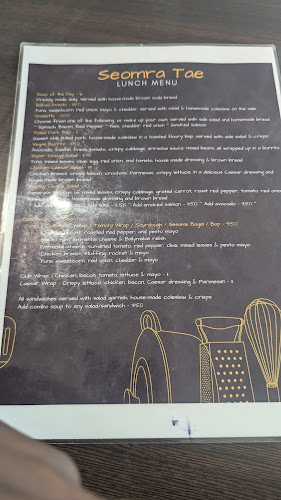 Seomra Tae
LUNCH MENU
Soup of the Day - 6
Freshly made daily, served with house-made brown soda bread
Baked Potato - 9.50
Tuna, sweetcorn, red onion, mayo & cheddar, served with salad & homemade coleslaw on the side
Omelette
Choose from one of the following, or make up your own, served with side salad and homemade bread
Spinach, Bacon, Red Pepper * Ham, cheddar, red onion * Smoked Salmon
Pulled Pork Bap
Sweet chilli pulled pork, house-made coleslaw in a toasted floury bap, served with side salad & crisps
Vegan Burrito
Avocado, beans, fresh tomato, crispy cabbage, sriracha sauce, mixed beans all wrapped up in a burrito
Super Omega Salad
Tuna, mixed leaves, olives, egg, red onion, and tomato, house made dressing & brown bread
Chicken Caesar Salad
Chicken breast, crispy bacon, croutons, Parmesan, crispy lettuce in a delicious Caesar dressing and
house-made brown bread
Healthy Leaves Salad
mixed leaves, crispy cabbage, grated carrot, roast red pepper, tomato, red onion
homemade dressing and brown bread
Add tuna - 3.50 * Add smoked salmon - 4.50 * Add avocado - 3.50
Wrap / Tomato Wrap / Sourdough / Sesame Bagel / Bap - 9.50
roasted red pepper, and pesto mayo
cheese & Ballymaloe relish
cheese, sundried tomato, red pepper, olive, mixed leaves & pesto mayo
Chicken breast, stuffing, rocket & mayo
Tuna, sweetcorn, red onion, cheddar & mayo
Club Wrap - Chicken, bacon, tomato, lettuce & mayo - 11
Caesar Wrap - Crispy lettuce, chicken, bacon, Caesar dressing & Parmesan - 11
All sandwiches served with salad garnish, house-made coleslaw & crisps
Add combo soup to any salad/sandwich - 4.50